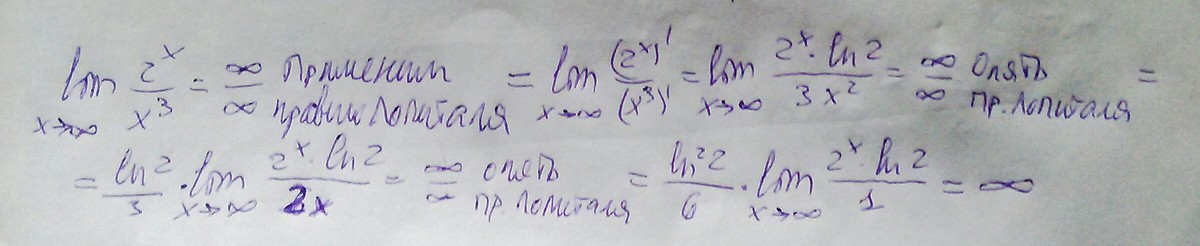 lim x→∞ 2^x / x^3 = ∞/∞ Применим правило Лопиталя = lim x→∞ (2^x)' / (x^3)' = lim x→∞ 2^x · ln 2 / 3x^2 = ∞/∞ опять пр. Лопиталя =
= ln 2 / 3 · lim x→∞ 2^x · ln 2 / 2x = ∞/∞ опять пр. Лопиталя = ln^2 2 / 6 · lim x→∞ 2^x · ln 2 / 1 = ∞